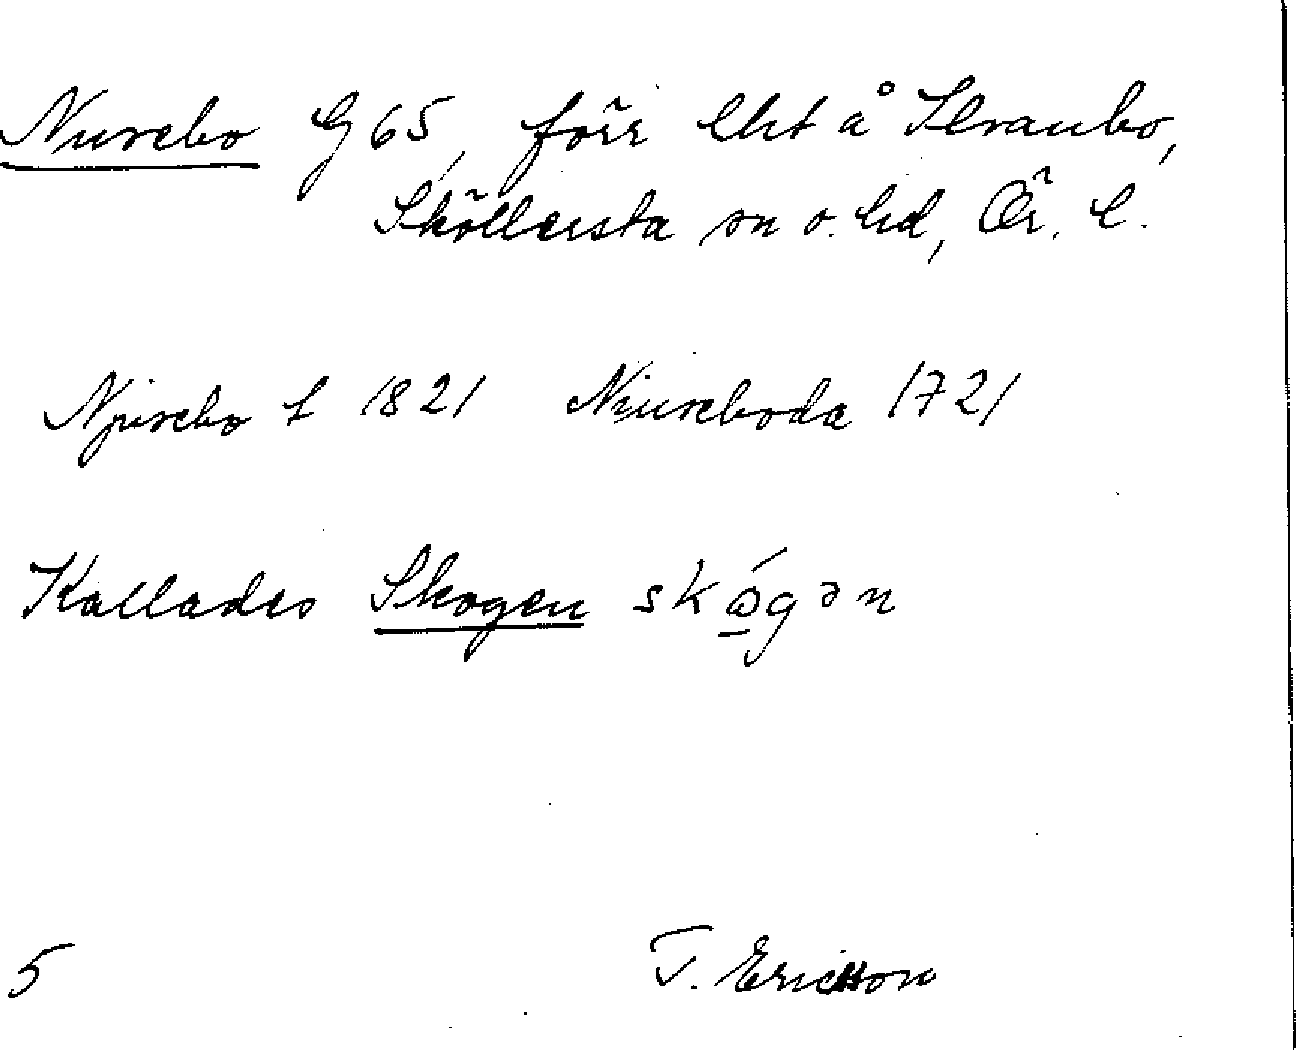 Nurebo G 65, förr lht å Skranbo,
Sköllersta sn o. hd, Ör. l.
Njurebo L 1821 Niureboda 1721
Kallades Skogen skó̱gən
5 T. Ericsson